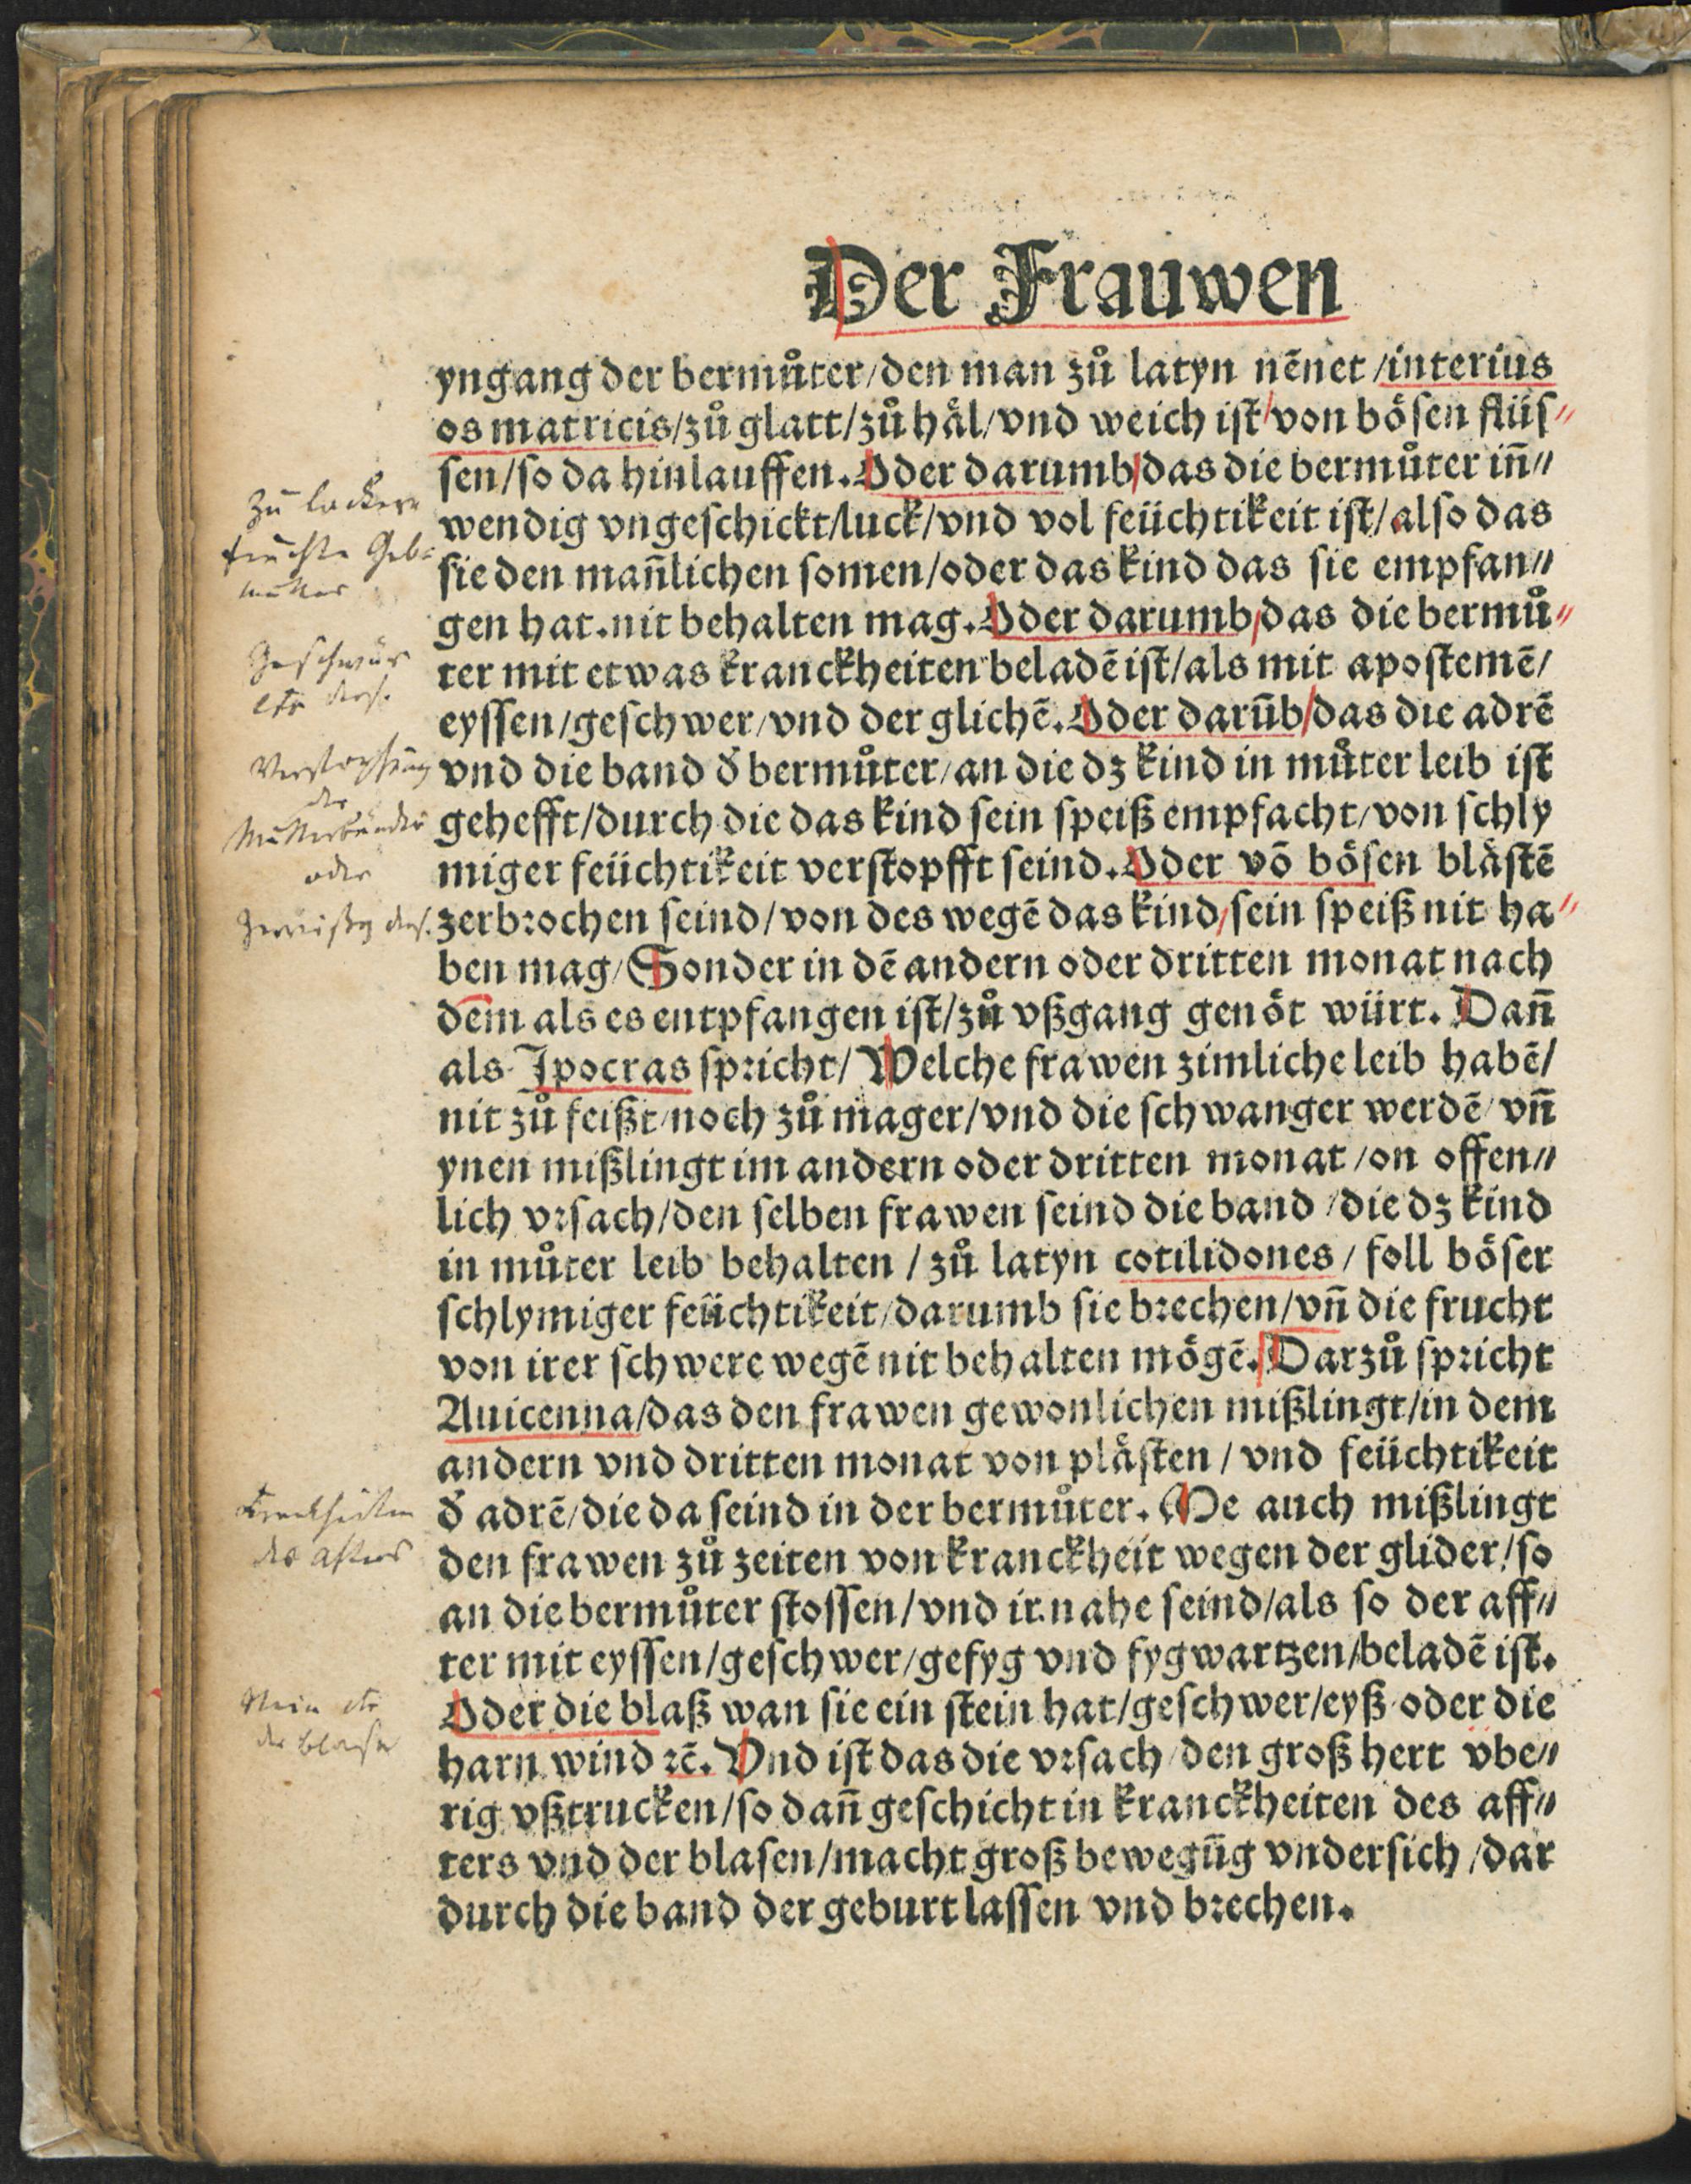 Der Frauwen
yngang der bermůter/den man zů latyn nēnet/interius
os matricis/zů glatt/zů häl/vnd weich ist/von bösen flüs〃
sen/so da hinlauffen. Oder darumb/das die bermůter iñ〃
wendig vngeschickt/luck/vnd vol feüchtikeit ist/also das
sie den mañlichen somen/oder das kind das sie empfan〃
gen hat. nit behalten mag. Oder darumb/das die bermů〃
ter mit etwas kranckheiten beladē ist/als mit apostemē/
eyssen/geschwer/vnd der glichē. Oder darūb/das die adrē
vnd die band d̕ bermůter/an die dz kind in můter leib ist
gehefft/durch die das kind sein speiß empfacht/von schly
miger feüchtikeit verstopfft seind. Oder vō bösen blästē
zerbrochen seind/von des wegē das kind/sein speiß nit ha〃
ben mag/Sonder in dē andern oder dritten monat nach
dem als es entpfangen ist/zů vßgang genöt würt. Dañ
als Ipocras spricht/Welche frawen zimliche leib habē/
nit zů feißt/noch zů mager/vnd die schwanger werdē/vñ
ynen mißlingt im andern oder dritten monat/on offen〃
lich vrsach/den selben frawen seind die band/die dz kind
in můter leib behalten/zů latyn cotilidones/foll böser
schlymiger feüchtikeit/darumb sie brechen/vñ die frucht
von irer schwere wegē nit behalten mögē. Darzů spricht
Auicenna/das den frawen gewonlichen mißlingt/in dem
andern vnd dritten monat von plästen/vnd feüchtikeit
d̕ adrē/die da seind in der bermůter. Me auch mißlingt
den frawen zů zeiten von kranckheit wegen der glider/so
an die bermůter stossen/vnd ir nahe seind/als so der aff〃
ter mit eyssen/geschwer/gefyg vnd fygwartzen/beladē ist.
Oder die blaß wan sie ein stein hat/geschwer/eyß oder die
harn wind ꝛc̄. Vnd ist das die vrsach/den groß hert vbe〃
rig vßtrucken/so dañ geschicht in kranckheiten des aff〃
ters vnd der blasen/macht groß bewegūg vndersich/dar
durch die band der geburt lassen vnd brechen.
zu lockere
feuchte Geb=
mutter
Geschwür
etc ders.
Verstopfung
der
Mutterbänder
oder
Krankheiten
des Afters
Stein etc
der Blase